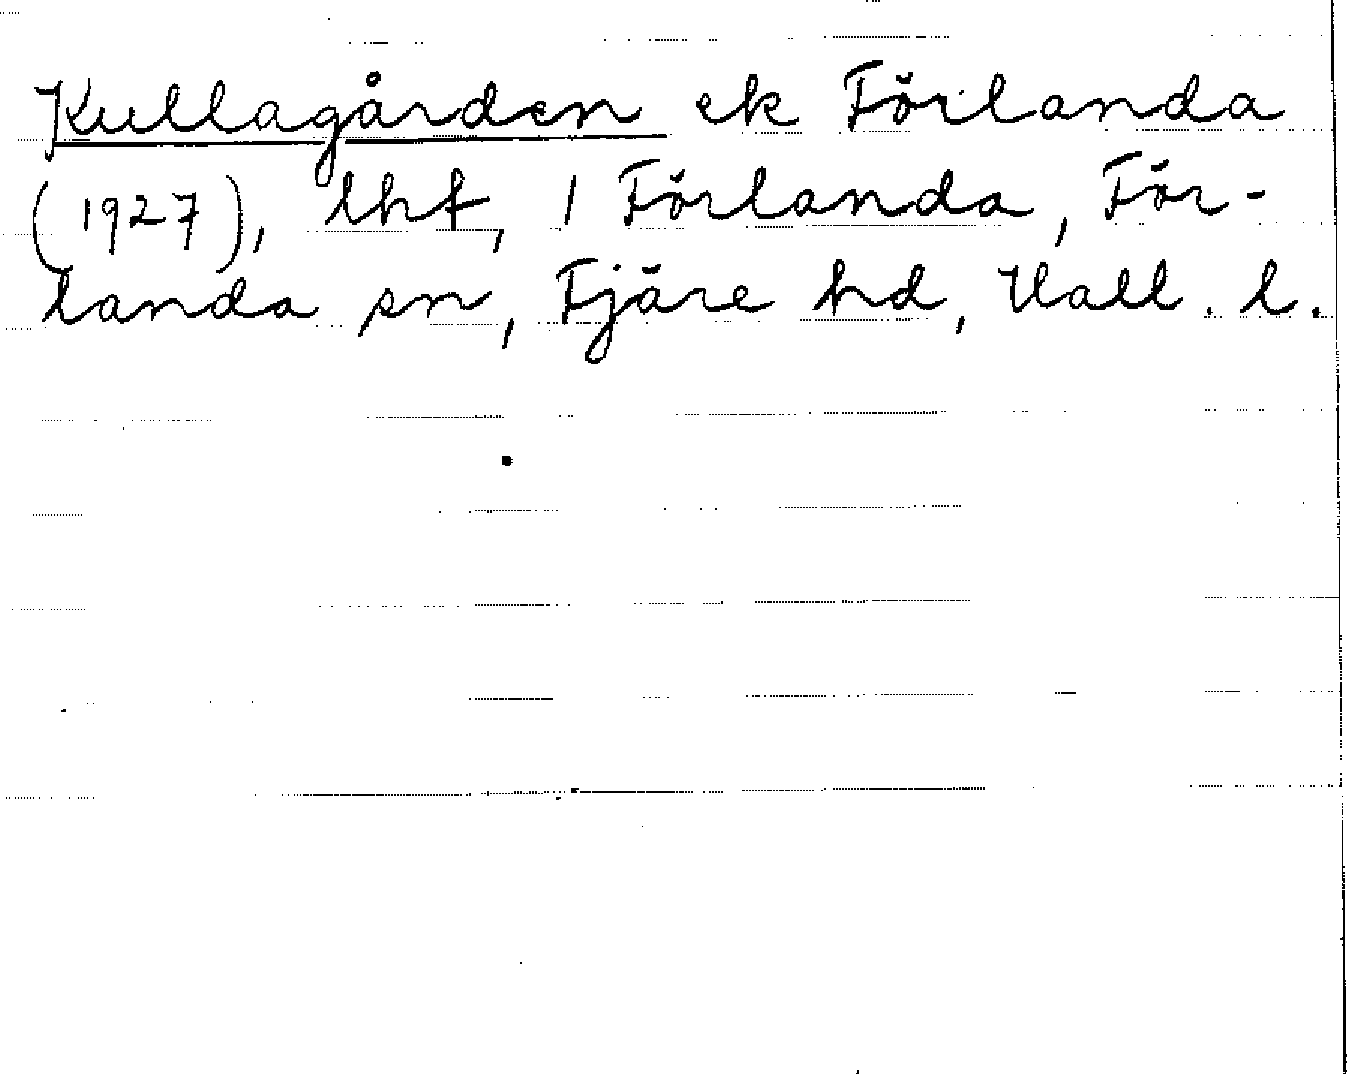 Kullagården ek Förlanda
(1927), lht, 1 Förlanda, För-
landa sn, Fjäre hd, Hall. l.